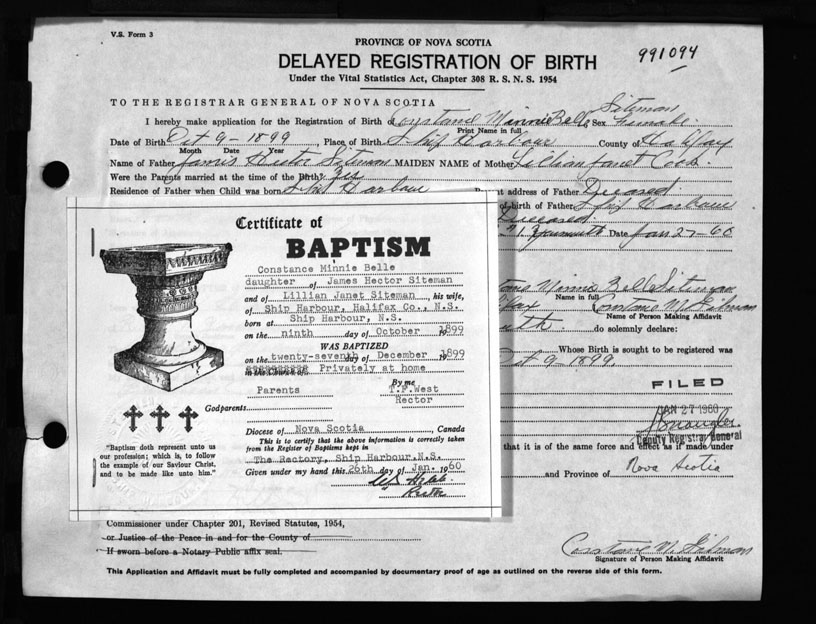 V.S. Form 3
PROVINCE OF NOVA SCOTIA
991094
DELAYED REGISTRATION OF BIRTH
Under the Vital Statistics Act, Chapter 308 R. S. N. S. 1954
TO THE REGISTRAR GENERAL OF NOVA SCOTIA
Siteman
I hereby make application for the Registration of Birth of Constance Minnie Belle Sex Female.
Print Name in full
Date of Birth Oct 9-1899 Place of Birth Ship Harbour County of Halifax
Month Date Year
Name of Father James Hector Siteman MAIDEN NAME of Mother Lillian Janet Cook.
Were the Parents married at the time of the Birth? Yes
Residence of Father when Child was born Ship Harbour address of Father Deceased.
of birth of Father Ship Harbour
Deceased
Yarmouth Date Jan 27-60
Minnie Bell Siteman
Name in full
Constance M.
Name of Person Making Affidavit
do solemnly declare:
Whose Birth is sought to be registered was
Oct 9-1899,
FILED
JAN 27 1960
Deputy Registrar General
that it is of the same force and effect as if made under
and Province of Nova Scotia
Certificate of
BAPTISM
Constance Minnie Belle
daughter of James Hector Siteman
and of Lillian Janet Siteman, his wife,
of Ship Harbour, Halifax Co., N.S.
born at Ship Harbour, N.S.
on the ninth day of October 1899
WAS BAPTIZED
on the twenty-seventh day of December 1899
Privately at home
By me
Parents T.F.West
Rector
Godparents
Diocese of Nova Scotia, Canada
This is to certify that the above information is correctly taken
from the Register of Baptisms kept in
The Rectory, Ship Harbour.N.S.
Given under my hand this 26th day of Jan. 1960
"Baptism doth represent unto us
our profession; which is, to follow
the example of our Saviour Christ,
and to be made like unto him."
Commissioner under Chapter 201, Revised Statutes, 1954,
or Justice of the Peace in and for the County of
If sworn before a Notary Public affix seal.
Constance M.
Signature of Person Making Affidavit
This Application and Affidavit must be fully completed and accompanied by documentary proof of age as outlined on the reverse side of this form.